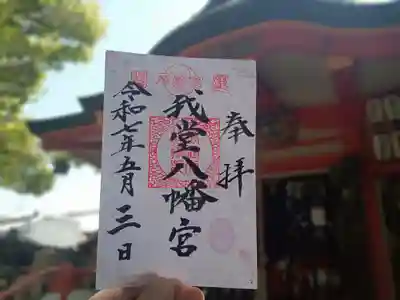 奉拝
我堂八幡宮
令和七年五月三日